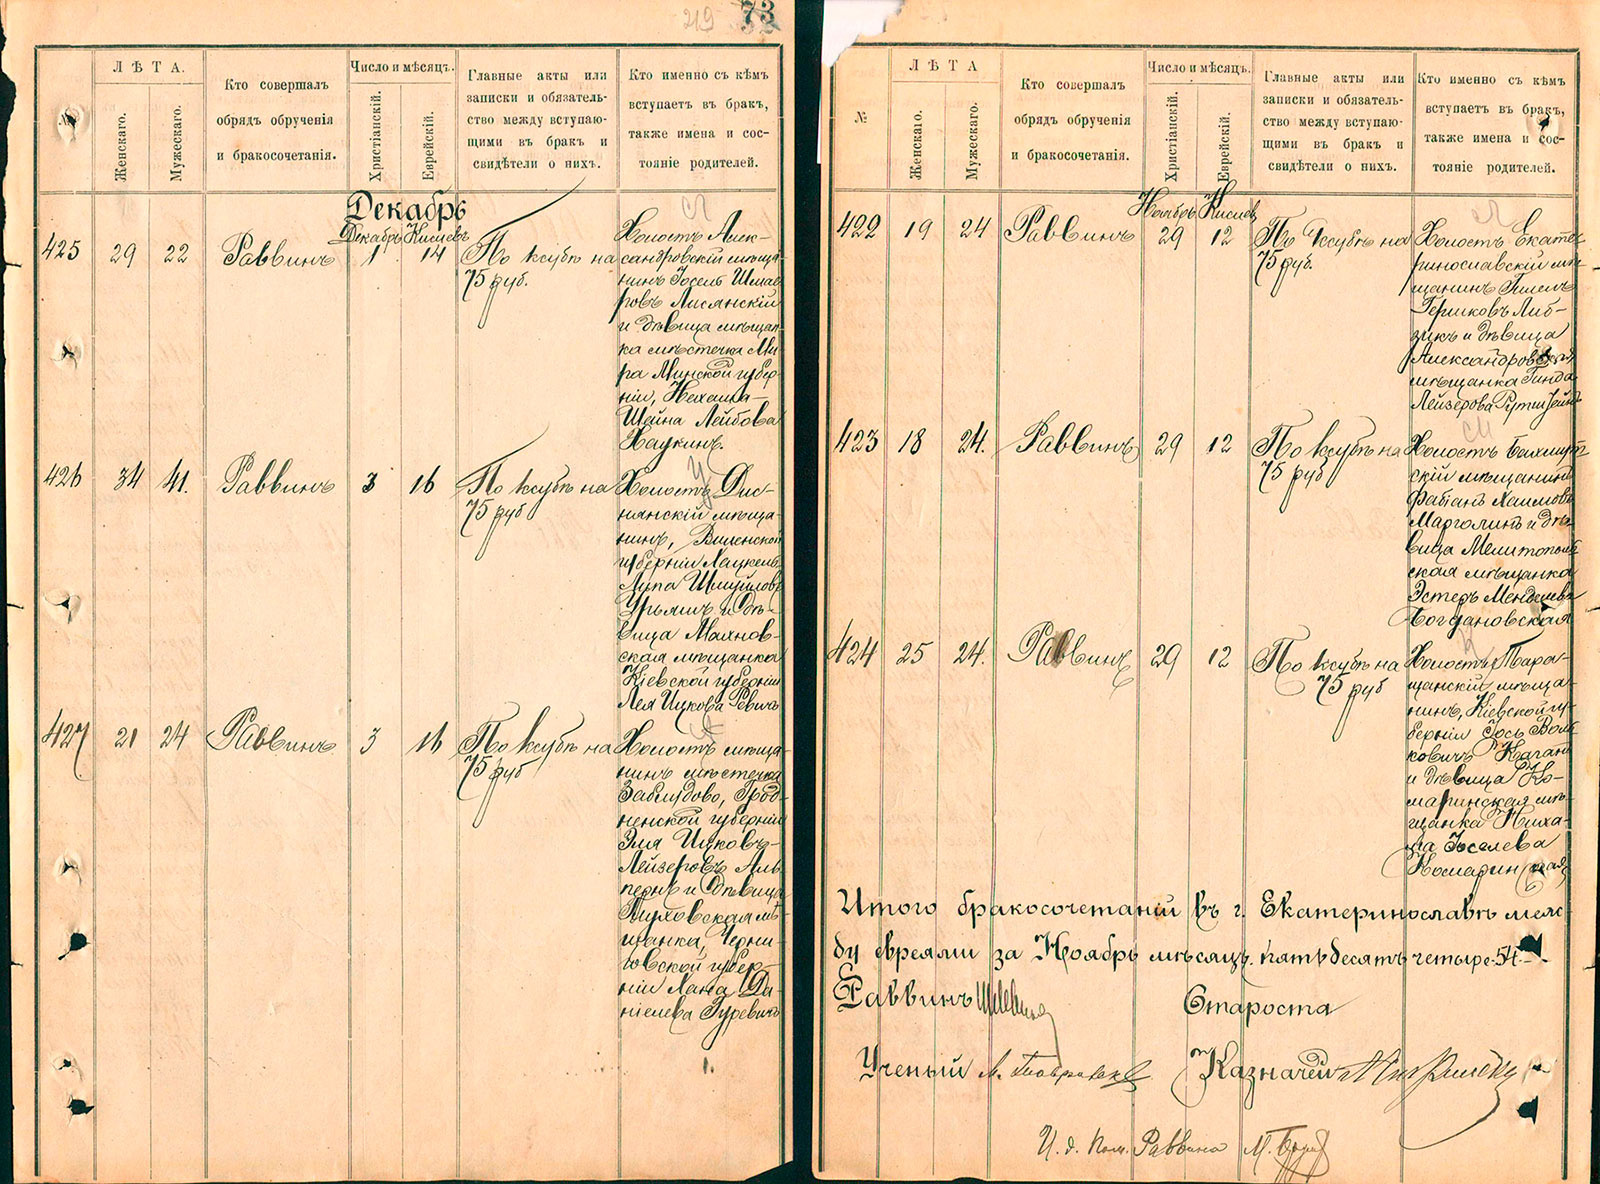 219 73
ЛѢТА.
№
Женскаго.
Мужескаго.
Кто совершалъ
обрядъ обрученія
и бракосочетанія.
Число и мѣсяцъ.
Христіанскій.
Еврейскій.
Главные акты или
записки и обязатель-
ство между вступаю-
щими въ бракъ и
свидѣтели о нихъ.
Кто именно съ кѣмъ
вступаетъ въ бракъ,
также имена и сос-
тояніе родителей.
Декабрь
Декабрь Кислевъ
425 29 22 Раввинъ 1 14
По ксубѣ на
75 руб.
Холостъ Алек-
сандровскій мѣща-
нинъ Іосель Шмае-
ровъ Лисянскій
и дѣвица мѣщан-
ка мѣстечка Ми-
ра Минской губер-
ніи, Нехама-
Шейна Лейбова
Хаукинъ.
426 34 41. Раввинъ 3 16
По ксубѣ на
75 руб
Холостъ Дис-
нянскій мѣща-
нинъ, Виленской
губерніи
Лупа Шмуйловъ
и дѣ-
вица Махнов-
ская мѣщанка
Кіевской губерніи
Лея Ицкова Ревичъ
427 21 24 Раввинъ 3 16
По ксубѣ на
75 руб
Холостъ мѣща-
нинъ мѣстечка
Заблудово, Грод-
ненской губерніи
Эля Ицковъ-
Лейзеровъ Аль-
пернъ и дѣвица
Глуховская мѣ-
щанка, Черни-
говской губер-
ніи Хана Да-
ніелева Гуревичъ
ЛѢТА
№
Женскаго.
Мужескаго.
Кто совершалъ
обрядъ обрученія
и бракосочетанія.
Число и мѣсяцъ.
Христіанскій.
Еврейскій.
Главные акты или
записки и обязатель-
ство между вступаю-
щими въ бракъ и
свидѣтели о нихъ.
Кто именно съ кѣмъ
вступаетъ въ бракъ,
также имена и сос-
тояніе родителей.
Ноябрь Кислев
422 19 24 Раввинъ 29 12
По ксубѣ на
75 руб.
Холостъ Екате-
ринославскій мѣ-
щанинъ Гилель
Гершковъ Либ-
зикъ и дѣвица
Александровская
мѣщанка Гинда
Лейзерова
423 18 24. Раввинъ 29 12
По ксубѣ на
75 руб
Холостъ Бахмут-
скій мѣщанинъ
Фабіанъ Хаимовъ
Марголинъ и дѣ-
вица Мелитополь-
ская мѣщанка
Эстеръ Менделева
Богдановская
424 25 24. Раввинъ 29 12
По ксубѣ на
75 руб
Холостъ Тара-
щанскій мѣща-
нинъ, Кіевской гу-
берніи Іось Воль-
ковичъ Каганъ
и дѣвица Ко-
маринская мѣ-
щанкаНиха-
ма Іоселева
Комаринская
Итого бракосочетаній въ г. Екатеринославѣ меж-
ду евреями за Ноябрь мѣсяцъ пятьдесятъ четыре-54.-
Раввинъ Староста
Ученый Казначей
И. д. пом. Раввина М.